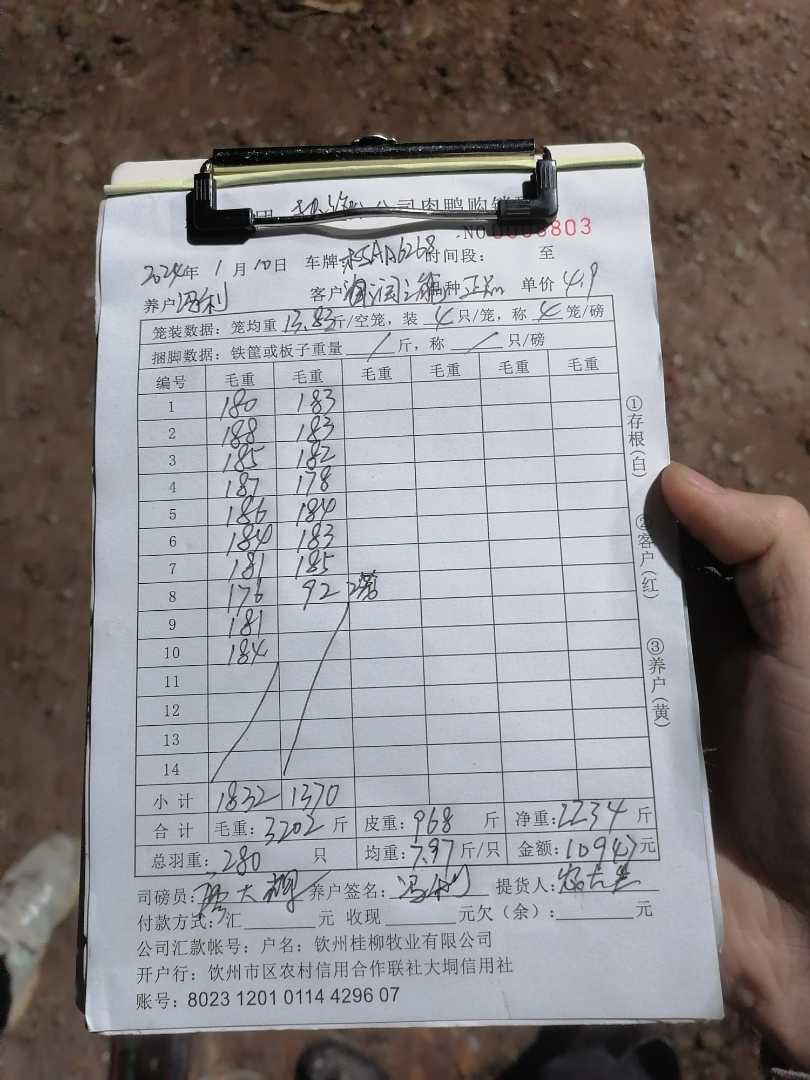 公司肉鸭购销
NO 0006803
2024年 1月10日 车牌 AA6268 时间段: 至
养户 冯利 客户 品种 正品 单价 4.9
笼装数据: 笼均重 13.83斤/空笼, 装 4 只/笼, 称 4 笼/磅
捆脚数据: 铁筐或板子重量 / 斤, 称 / 只/磅
编号 毛重 毛重 毛重 毛重 毛重 毛重
1 180 183
2 188 183
3 185 182
4 187 178
5 186 184
6 184 183
7 181 185
8 176 92 2笼
9 181
10 184
11
12
13
14
小计 1832 1370
合计 毛重: 3202 斤 皮重: 968 斤 净重: 2234 斤
总羽重: 280 只 均重: 7.97 斤/只 金额: 10947 元
司磅员: 养户签名: 冯利 提货人:
付款方式: 汇 元 收现 元欠(余): 元
公司汇款帐号: 户名: 钦州桂柳牧业有限公司
开户行: 钦州市区农村信用合作联社大垌信用社
账号: 8023 1201 0114 4296 07
①存根(白)
②客户(红)
③养户(黄)